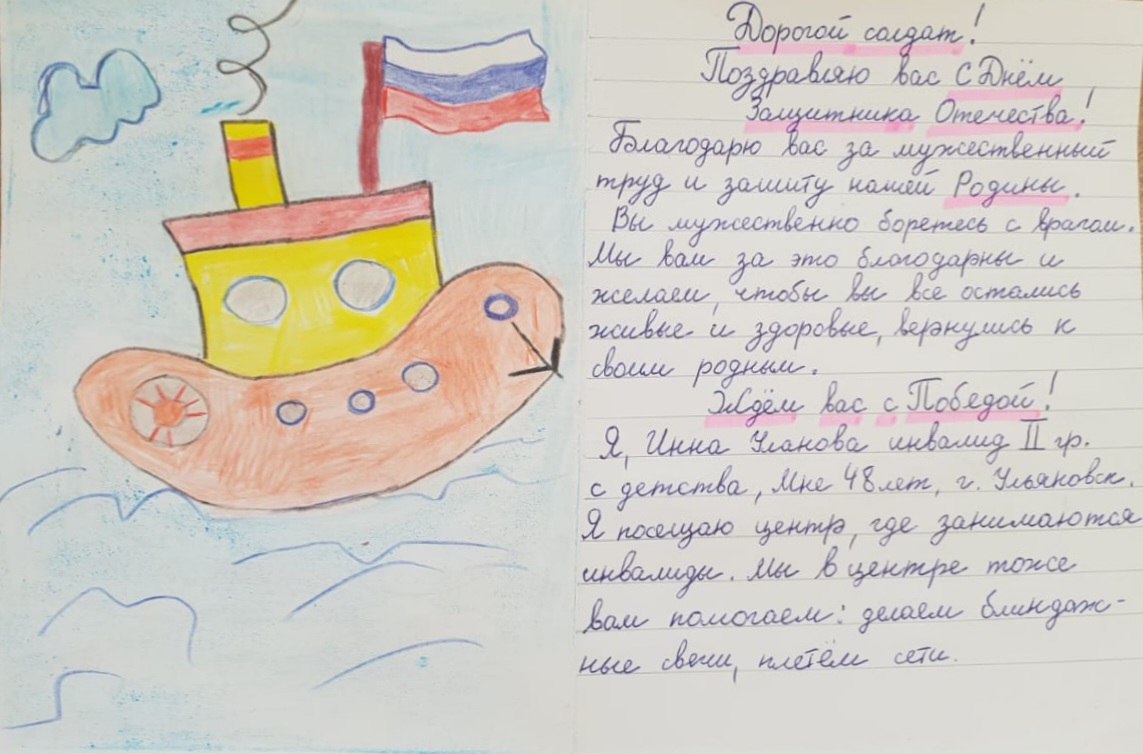 Дорогой солдат!
Поздравляю вас С Днём
Защитника Отечества!
Благодарю вас за мужественный
труд и защиту нашей Родины.
Вы мужественно боретесь с врагом.
Мы вам за это благодарны и
желаем, чтобы вы все остались
живые и здоровые, вернулись к
своим родным.
Ждём вас с Победой!
Я, Инна Уланова инвалид II гр.
с детства, Мне 48 лет, г. Ульяновск.
Я посещаю центр, где занимаются
инвалиды. Мы в центре тоже
вам помогаем: делаем блиндаж-
ные свечи, плетём сети.